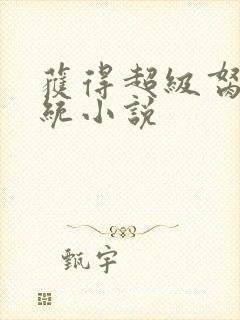 獲得超級
統小說
甄宇